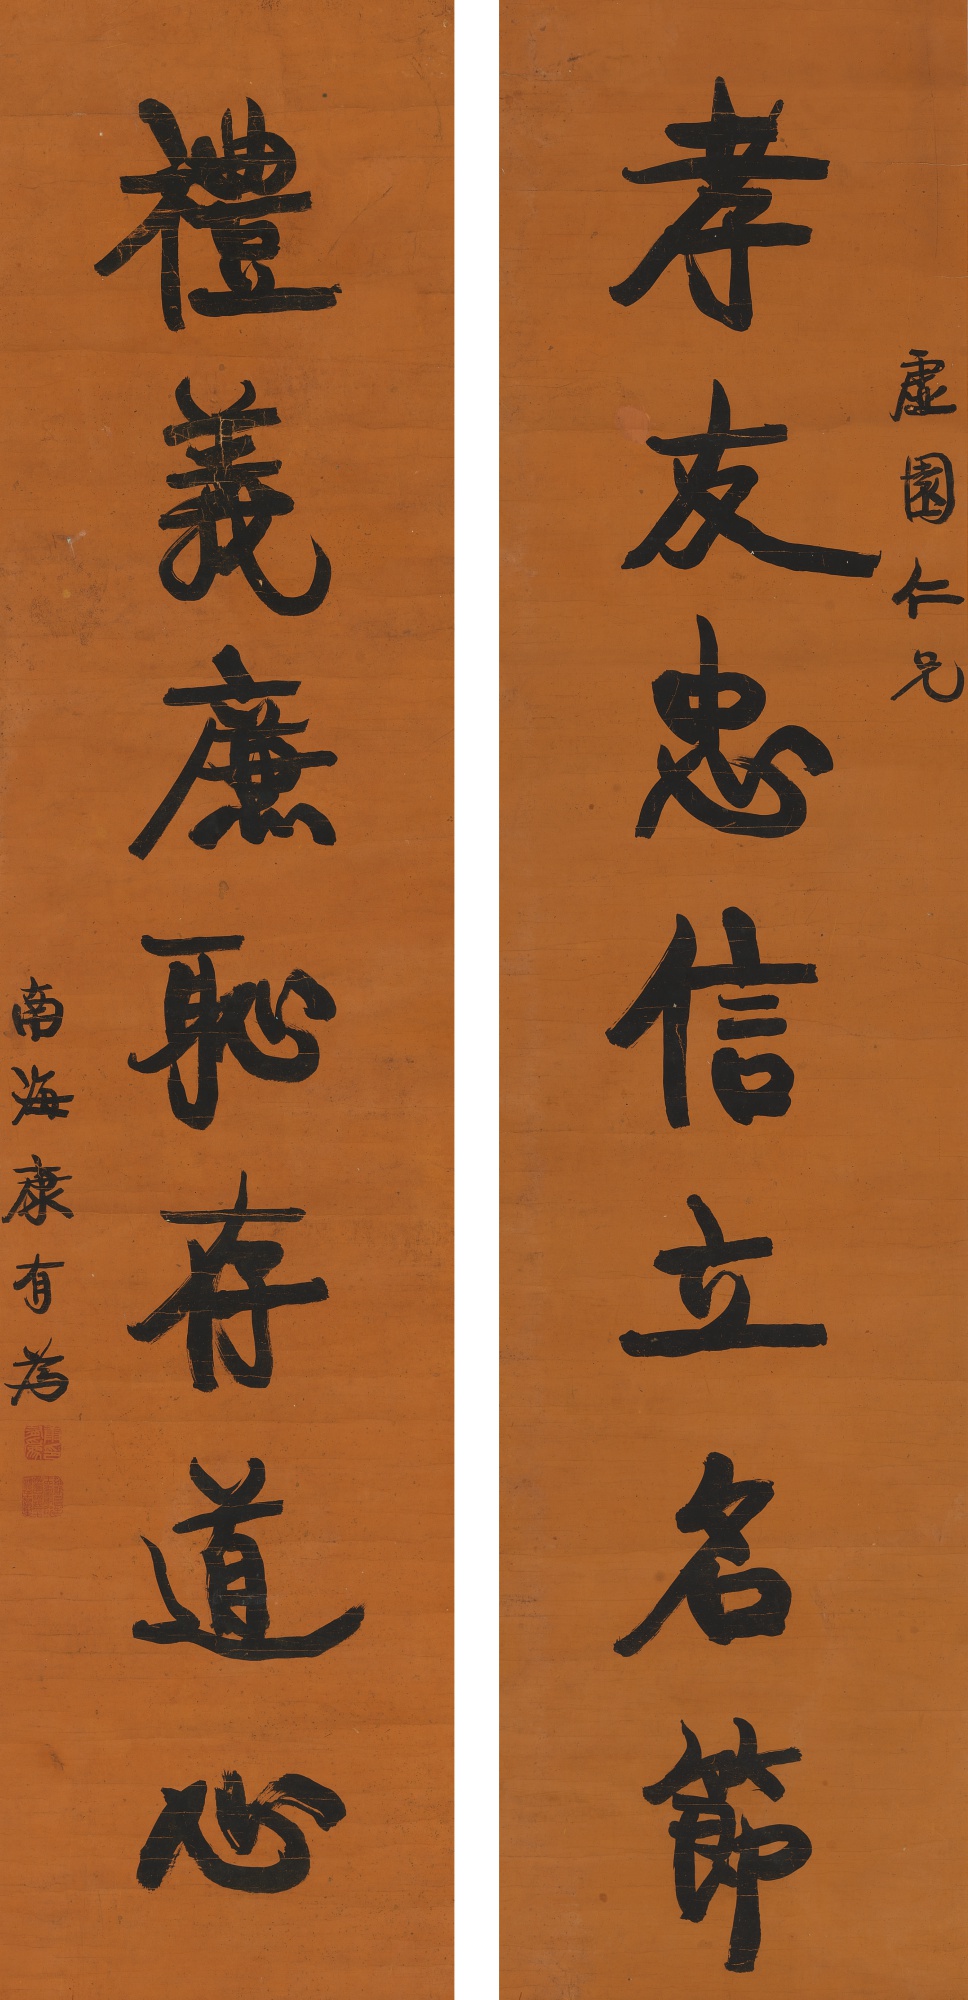 虛園仁兄
孝友忠信立名節
禮義廉恥存道心
南海康有為